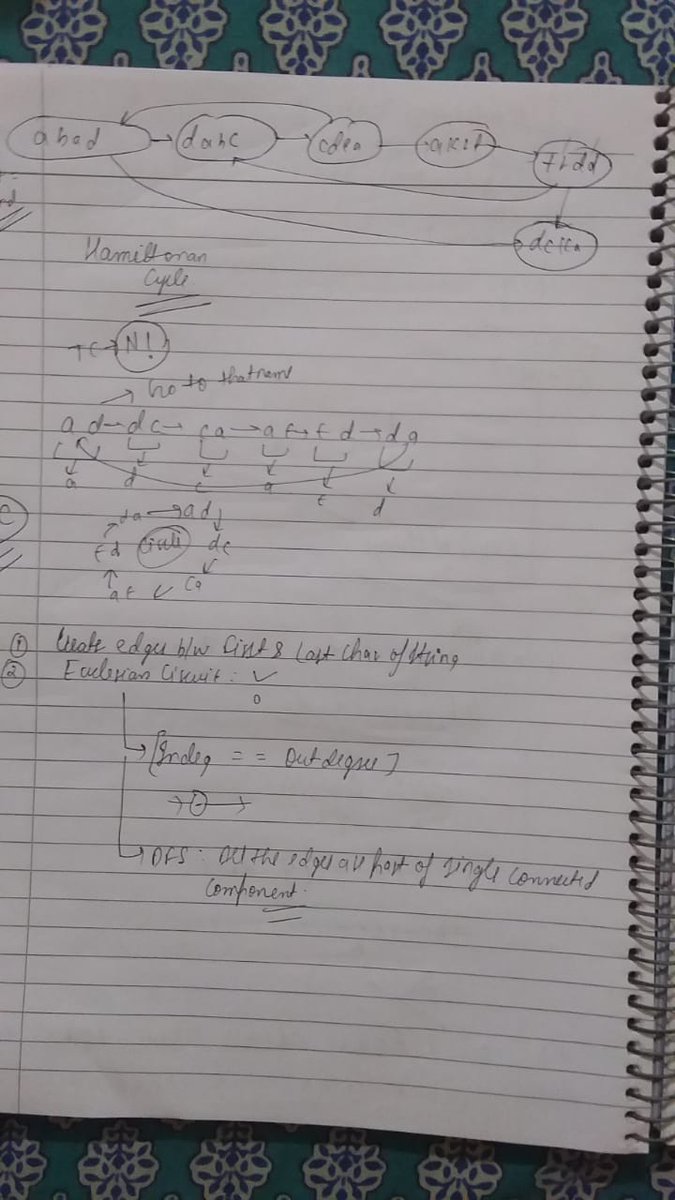 abad → dabc → cdea → akif → frdd
dcka
Hamiltonian
Cycle
TC → N!
→ Go to that name
a d → dc → ca → af → fd → da
a d c a f d
da → ad
fd circle dc
af ca
① Create edges b/w first & last char of string
② Eulerian Circuit : ✓
0
[Indeg == Outdegree]
DFS : All the edges are part of single connected
component.